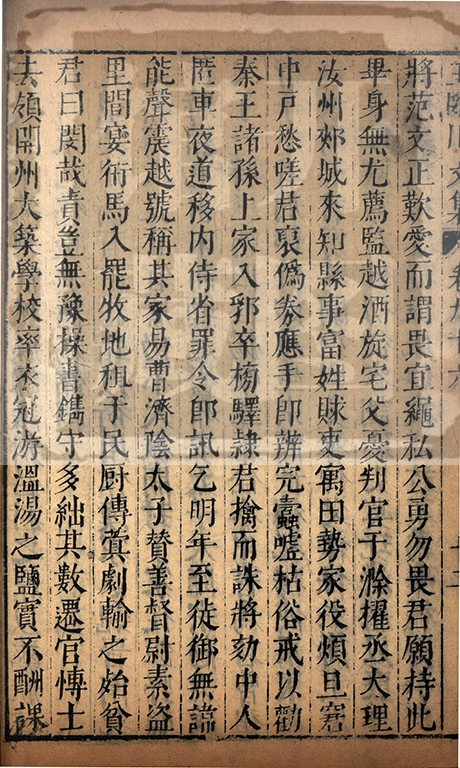 臨川文集 卷九十六
將范文正歎愛而謂畏宜繩私公勇勿畏君願持此
畢身無尤薦監越酒旋宅父憂判官于滁擢丞大理
汝州郟城來知縣事富姓賕吏寓田勢家役煩且窘
中戶愁嗟君裒僞券應手即辨完蠹噓枯俗戒以勸
秦王諸孫上冢入郛卒搒驛隷君擒而誅將劾中人
匿車夜道移内侍省罪令即訊乞明年至徒御無譁
能聲震越號稱其家易曹濟陰太子贊善督尉素盗
里閭宴術馬入罷牧地租于民厨傳奠劇輸之始貧
君曰閔哉責豈無豫操書鐫守多絀其數遷官慱士
去領開州大築學校率衣冠游溫湯之鹽寳不酬課